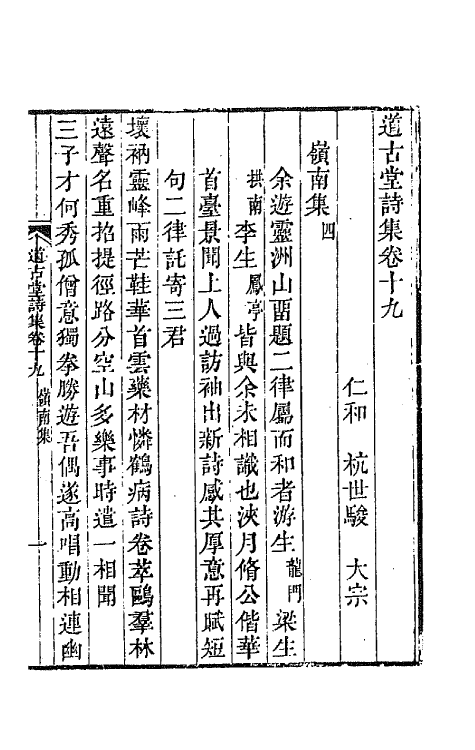 道古堂詩集卷十九
仁和 杭世駿 大宗
嶺南集四
余遊靈洲山畱題二律屬而和者游生龍門梁生
拱南李生鳳亭皆與余未相識也浹月脩公偕華
首臺景聞上人過訪袖出新詩感其厚意再賦短
句二律託寄三君
壞衲靈峰雨芒鞋華首雲藥材憐鶴病詩卷萃鷗羣林
遠聲名重招提徑路分空山多樂事時遣一相聞
三子才何秀孤僧意獨拳勝遊吾偶遂高唱動相連幽
道古堂詩集卷十九 嶺南集 一